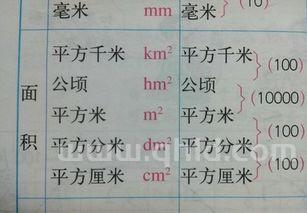 毫米 mm 毫米 (10)
平方千米 km² 平方千米 (100)
公顷 hm² 公顷 (10000)
面积
平方米 m² 平方米 (100)
平方分米 dm² 平方分米 (100)
平方厘米 cm² 平方厘米